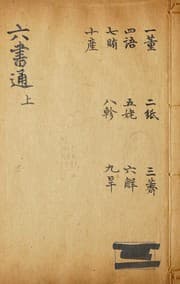 一董 二紙 三薺
四語 五姥 六解
七賄 八軫 九旱
十產
六書通 上